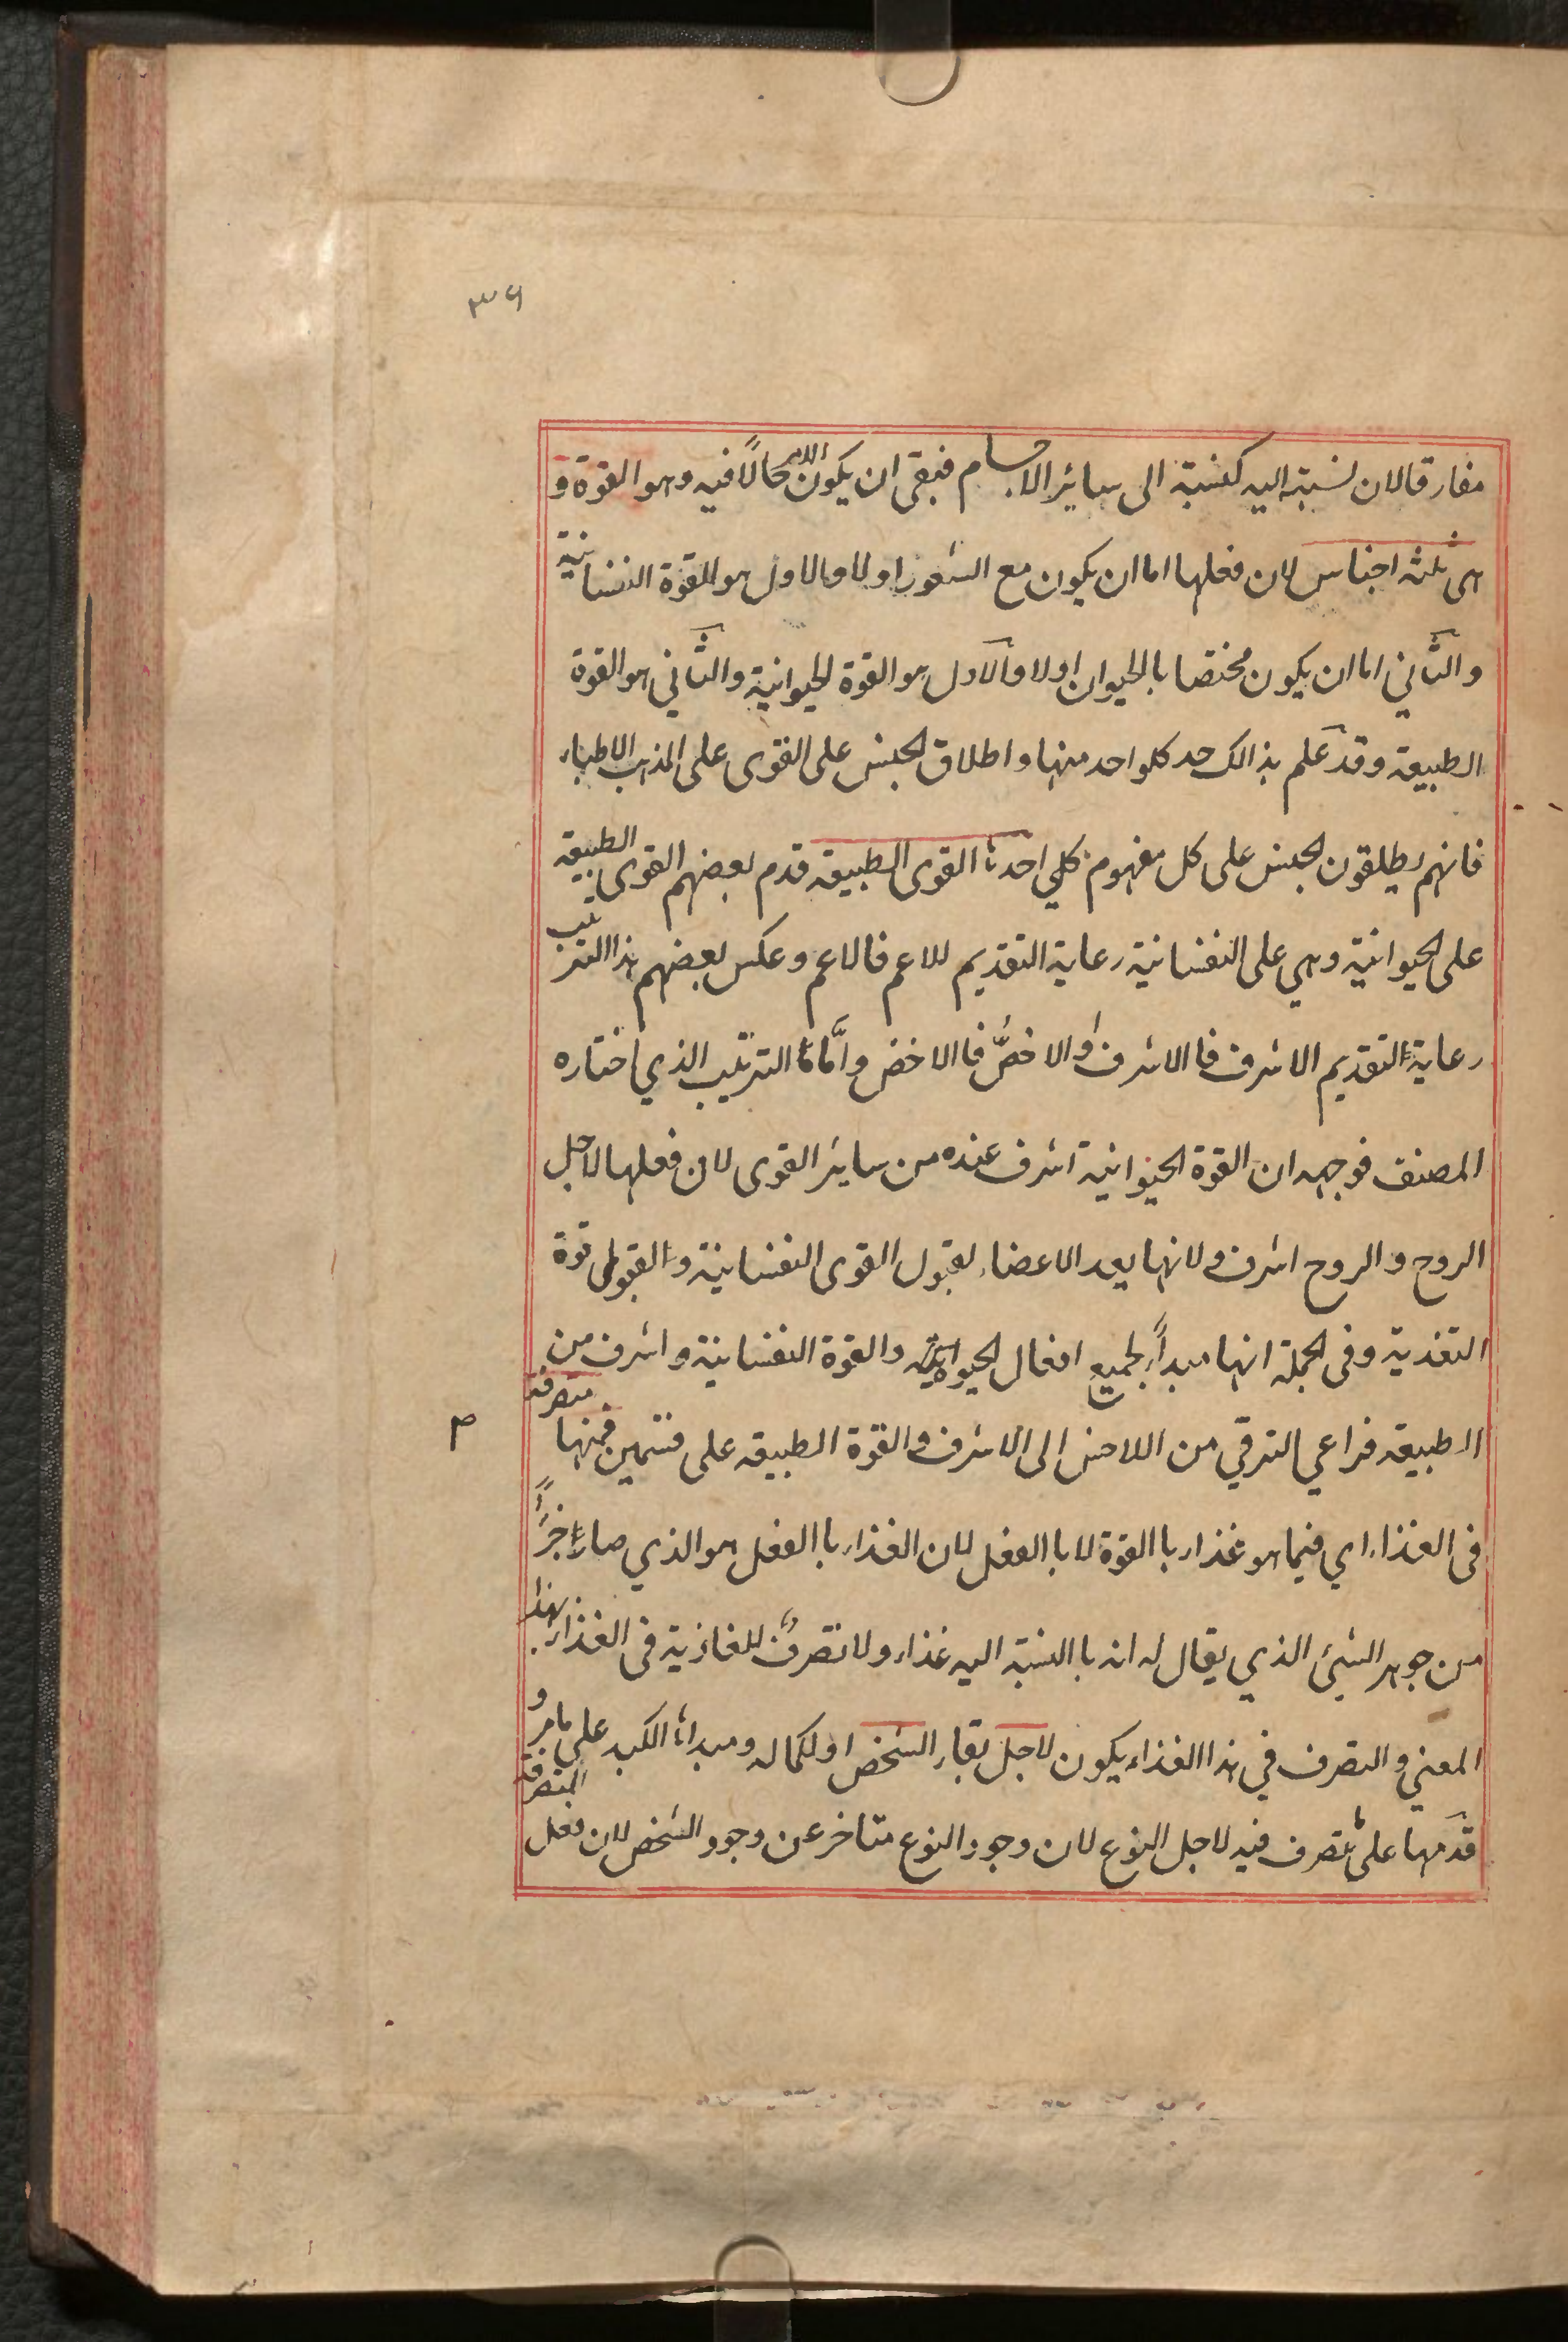 ٣٩
مفارقا لان نسبته اليه كنسبة الى سائر الاجسام فبقى ان يكون الامر حالًا فيه وهو القوة و
هى ثلثه اجناس لان فعلها اما ان يكون مع الشعور اولا والاول هو القوة النفسانية
والثاني اما ان يكون مختصا بالحيوان اولا والاول هو القوة الحيوانية والثاني هو القوة
الطبيعة وقد علم بذالك حد كلواحد منها واطلاق الجنس على القوى على المذهب الاطباء
فانهم يطلقون الجنس على كل مفهوم كلي احدها القوى الطبيعه قدم بعضهم القوى الطبيعه
على الحيوانية وهي على النفسانية رعاية التقديم للاعم فالاعم وعكس بعضهم هذا الترتيب
رعاية التقديم الاشرف فا الاشرف والاخصّ فا الاخص وامّا الترتيب الذي اختاره
المصنف فوجهه ان القوة الحيوانية اشرف عنده من سائر القوى لان فعلها لاجل
الروح والروح اشرف ولانها يعد الاعضاء لقبول القوى النفسانية و القبول قوة
التغذية وفى الجملة انها مبدأً لجميع افعال الحيوانية والقوة النفسانية واشرف من
الطبيعه فراعي الترقي من اللاخس الى الاشرف والقوة الطبيعه على قسمين فمنها متصرفة
م
فى الغذاء اي فيما هو غذاء با القوة لا با الفعل لان الغذاء با الفعل هو الذي صار جزأً
من جوهر الشيئ الذي يقال له انه با النسبة اليه غذاء ولا تصرف للغاذية فى الغذاء بهذا
المعنى و التصرف في هذا الغذاء يكون لاجل بقاء الشخص او لكماله ومبدأ الكبد على مامر و
قدمها على المتصرفة يتصرف فيه لاجل النوع لان وجود النوع متاخر عن وجود الشخص لان فعل